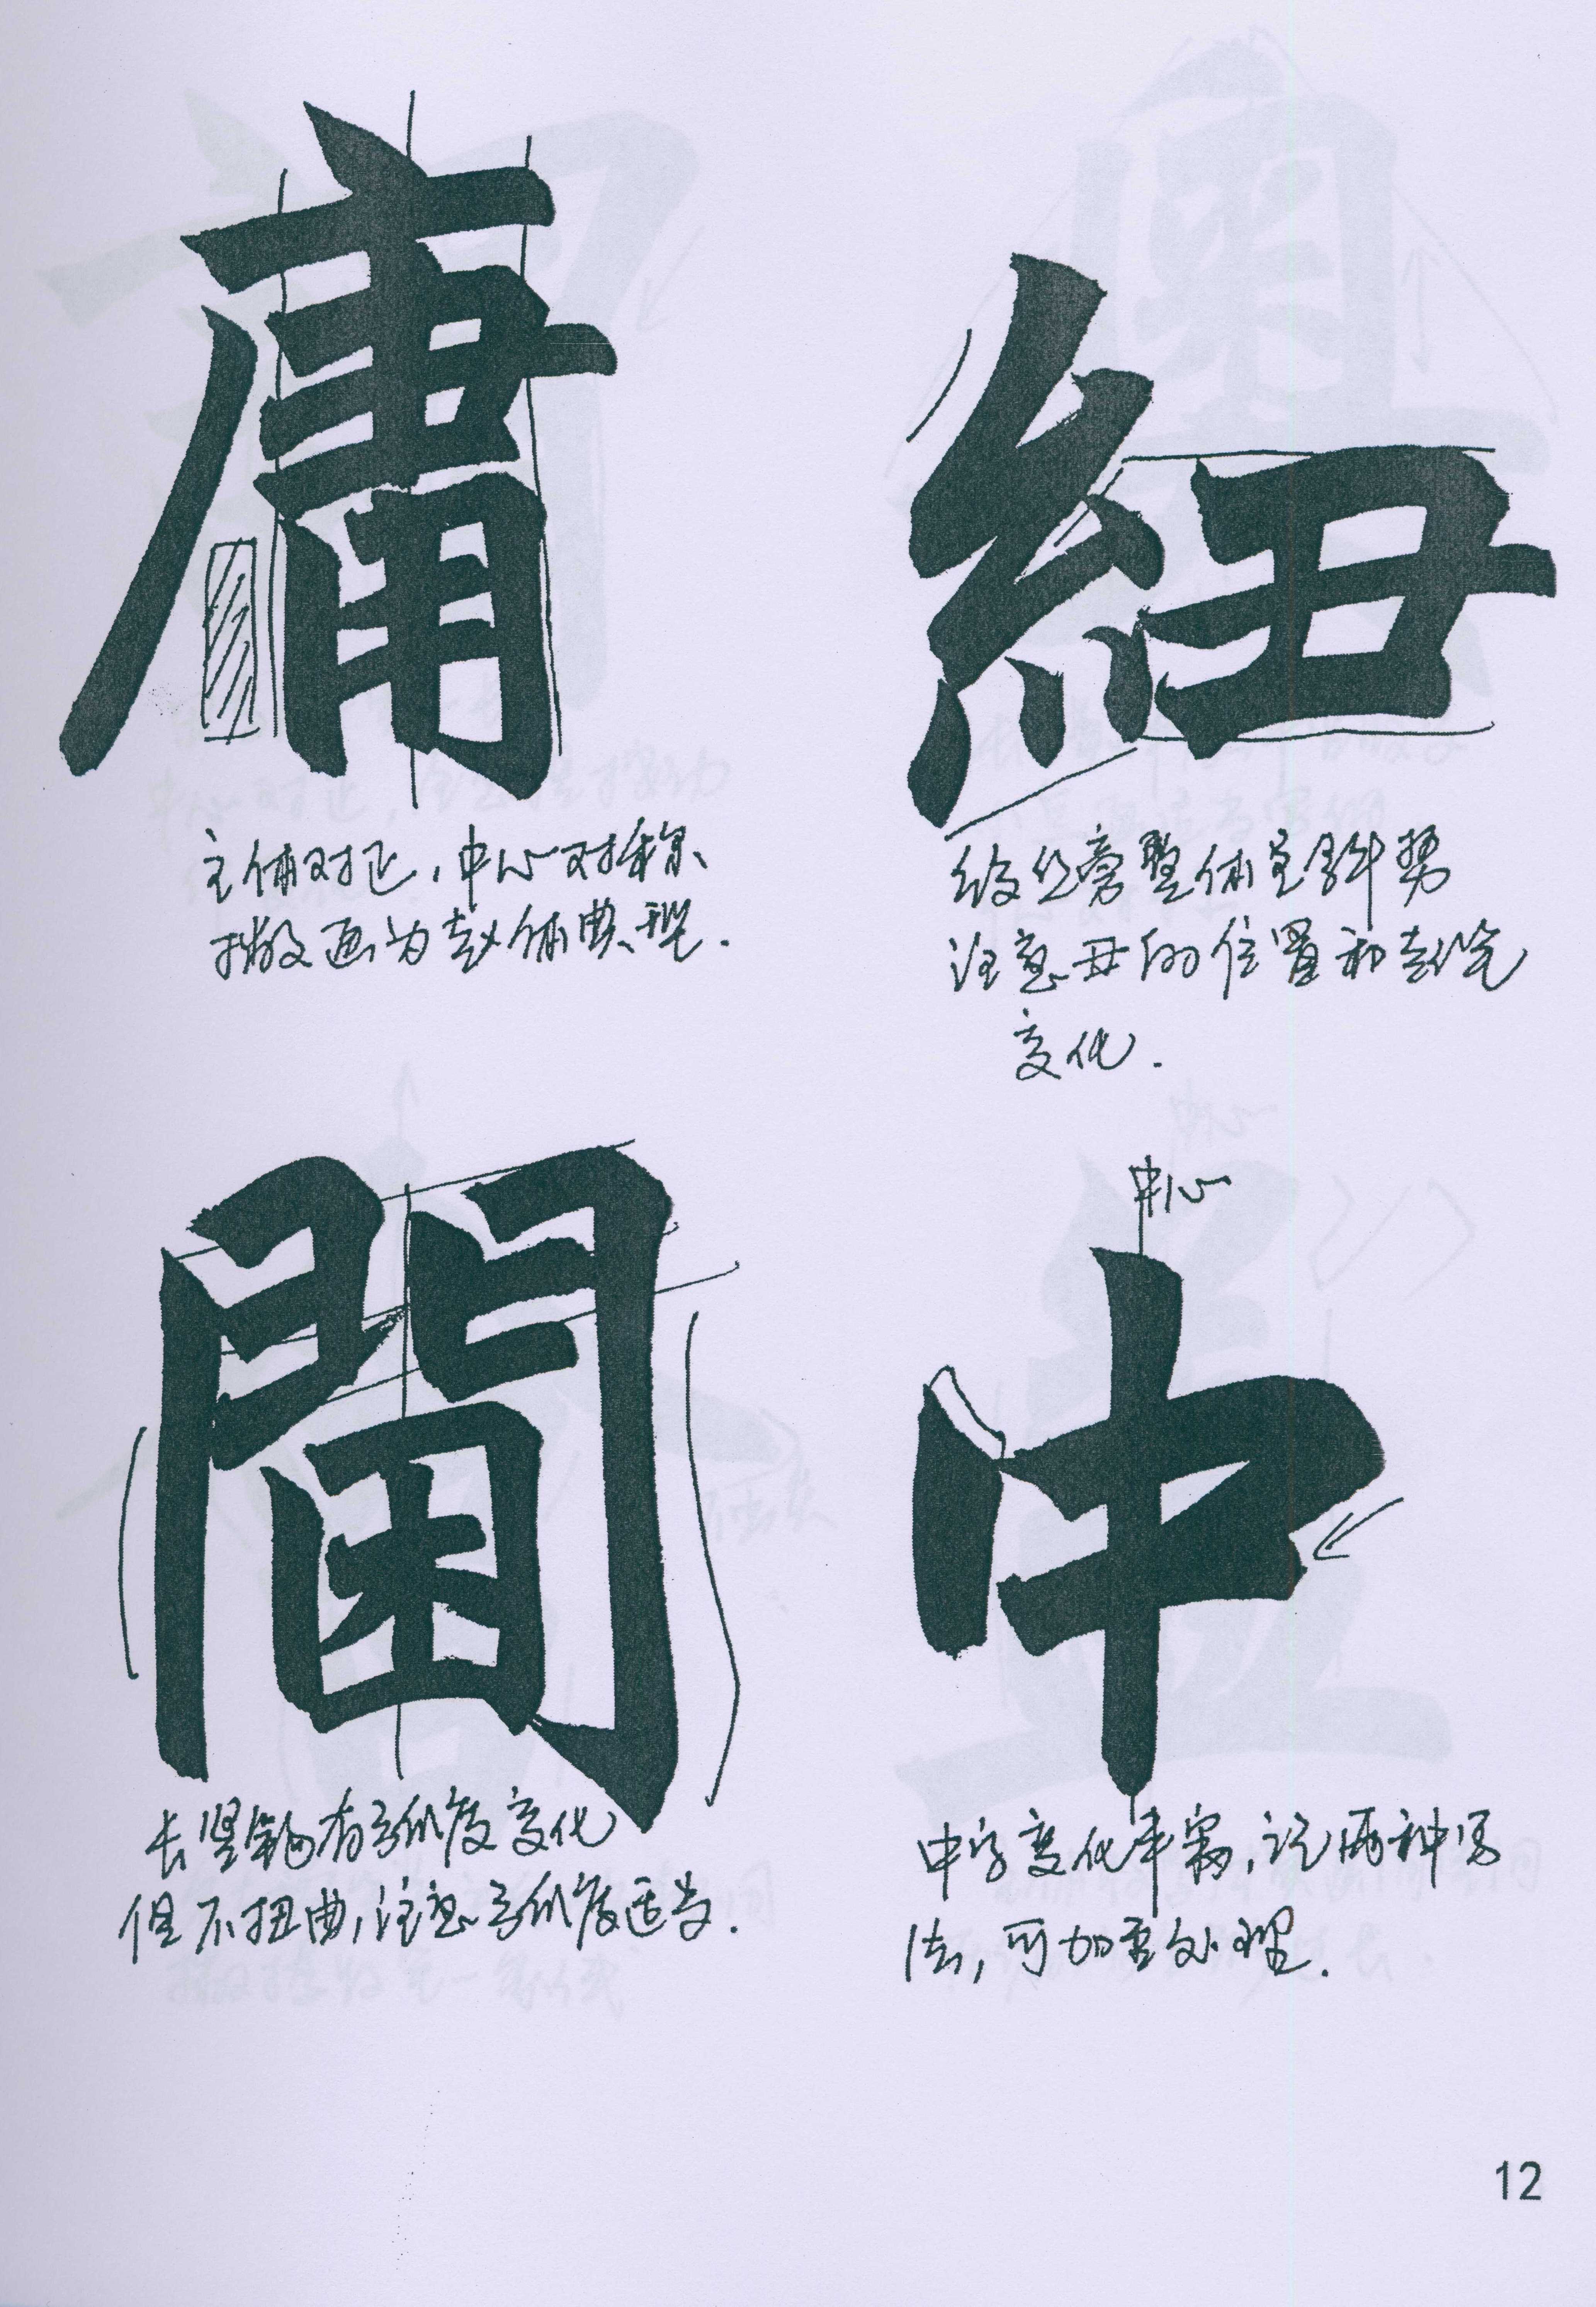 庸
主体对正,中心对称、
撇画为赵体典型.
紐
绞丝旁整体呈斜势
注意丑的位置和起笔
变化.
閫
长竖钩有弧度变化
但不扭曲,注意弧度适当.
中心
中
中字变化丰富,记两种写
法,可加重处理.
12